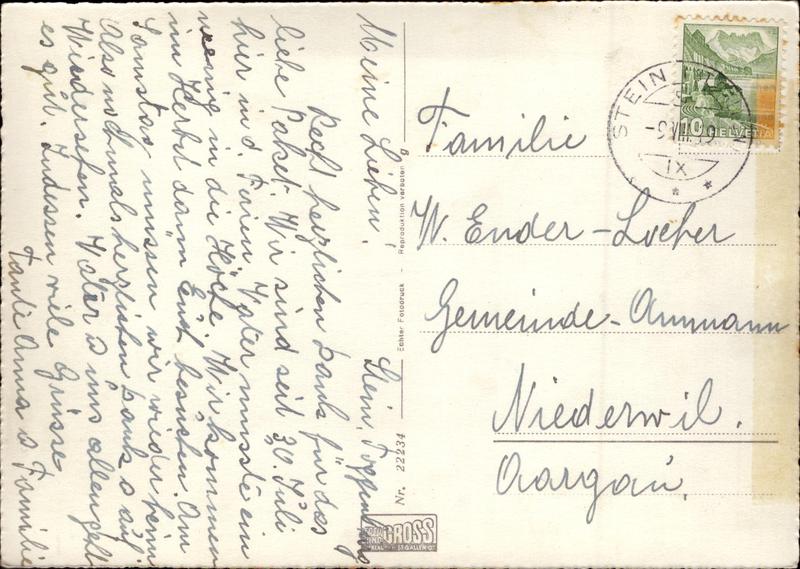 Meine Lieben!
Stein, Toggenburg
Recht herzlichen Dank für das
liebe Paket. Wir sind seit 30. Juli
hier in d. Ferien. Vater musste ein
wenig in die Höhe. Wir kommen
im Herbst dann Euch besuchen. Am
Samstag müssen wir wieder heim
Also nochmals herzlichen Dank & auf
Wiedersehen. Vater & uns allen geht
es gut. Indessen viele Grüsse
Tante Anna & Familie
Nr. 22234 Echter Fotodruck - Reproduktion verboten B
GROSS
ST. GALLEN
Familie
W. Ender-Locher
Gemeinde-Ammann
Niederwil.
Aargau.
STEIN
IX
10 HELVETIA